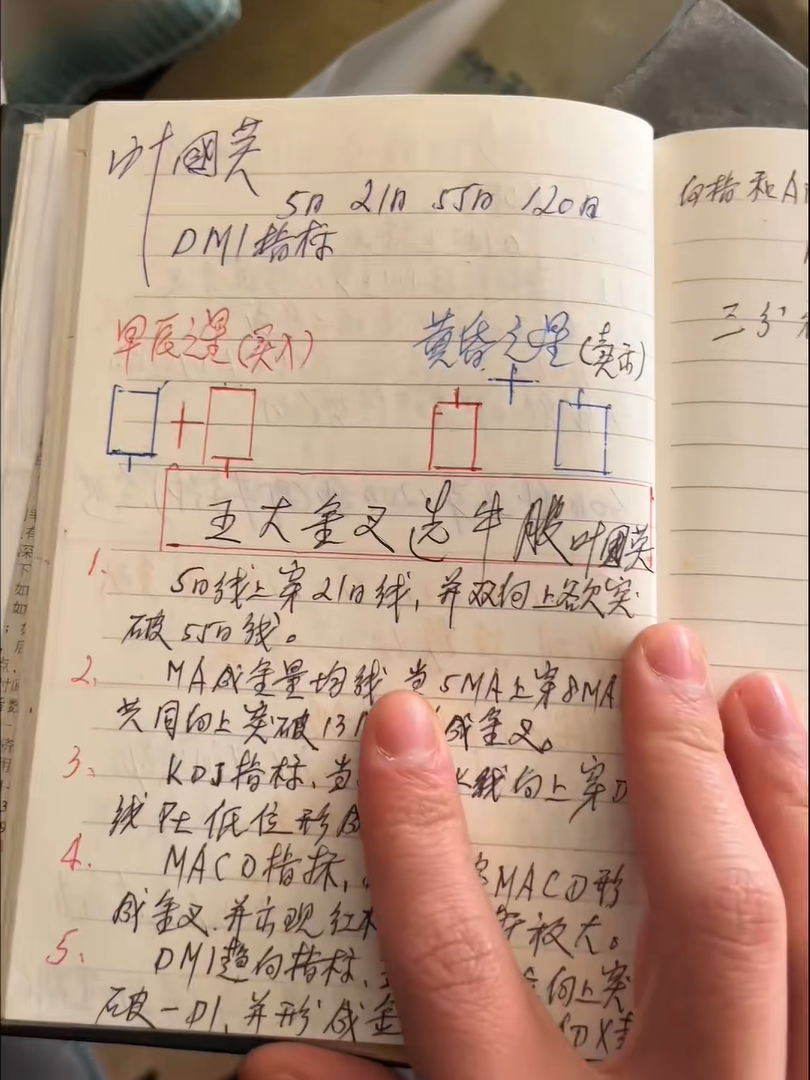 叶国英
5日 21日 55日 120日
DMI指标
早辰之星(买入)
黄昏之星(卖出)
五大金叉选牛股 叶国英
1. 5日线上穿21日线,并双向上各欠突
破55日线。
2. MA成金量均线 当5MA上穿8MA
共同向上突破13 成金叉。
3. KDJ指标,当 线向上穿D
线 在低位形成
4. MACD指标, MACD形
成金叉.并出现红 放大。
5. DMI趋向指标, 向上突
破-DI,并形成金
向指和A